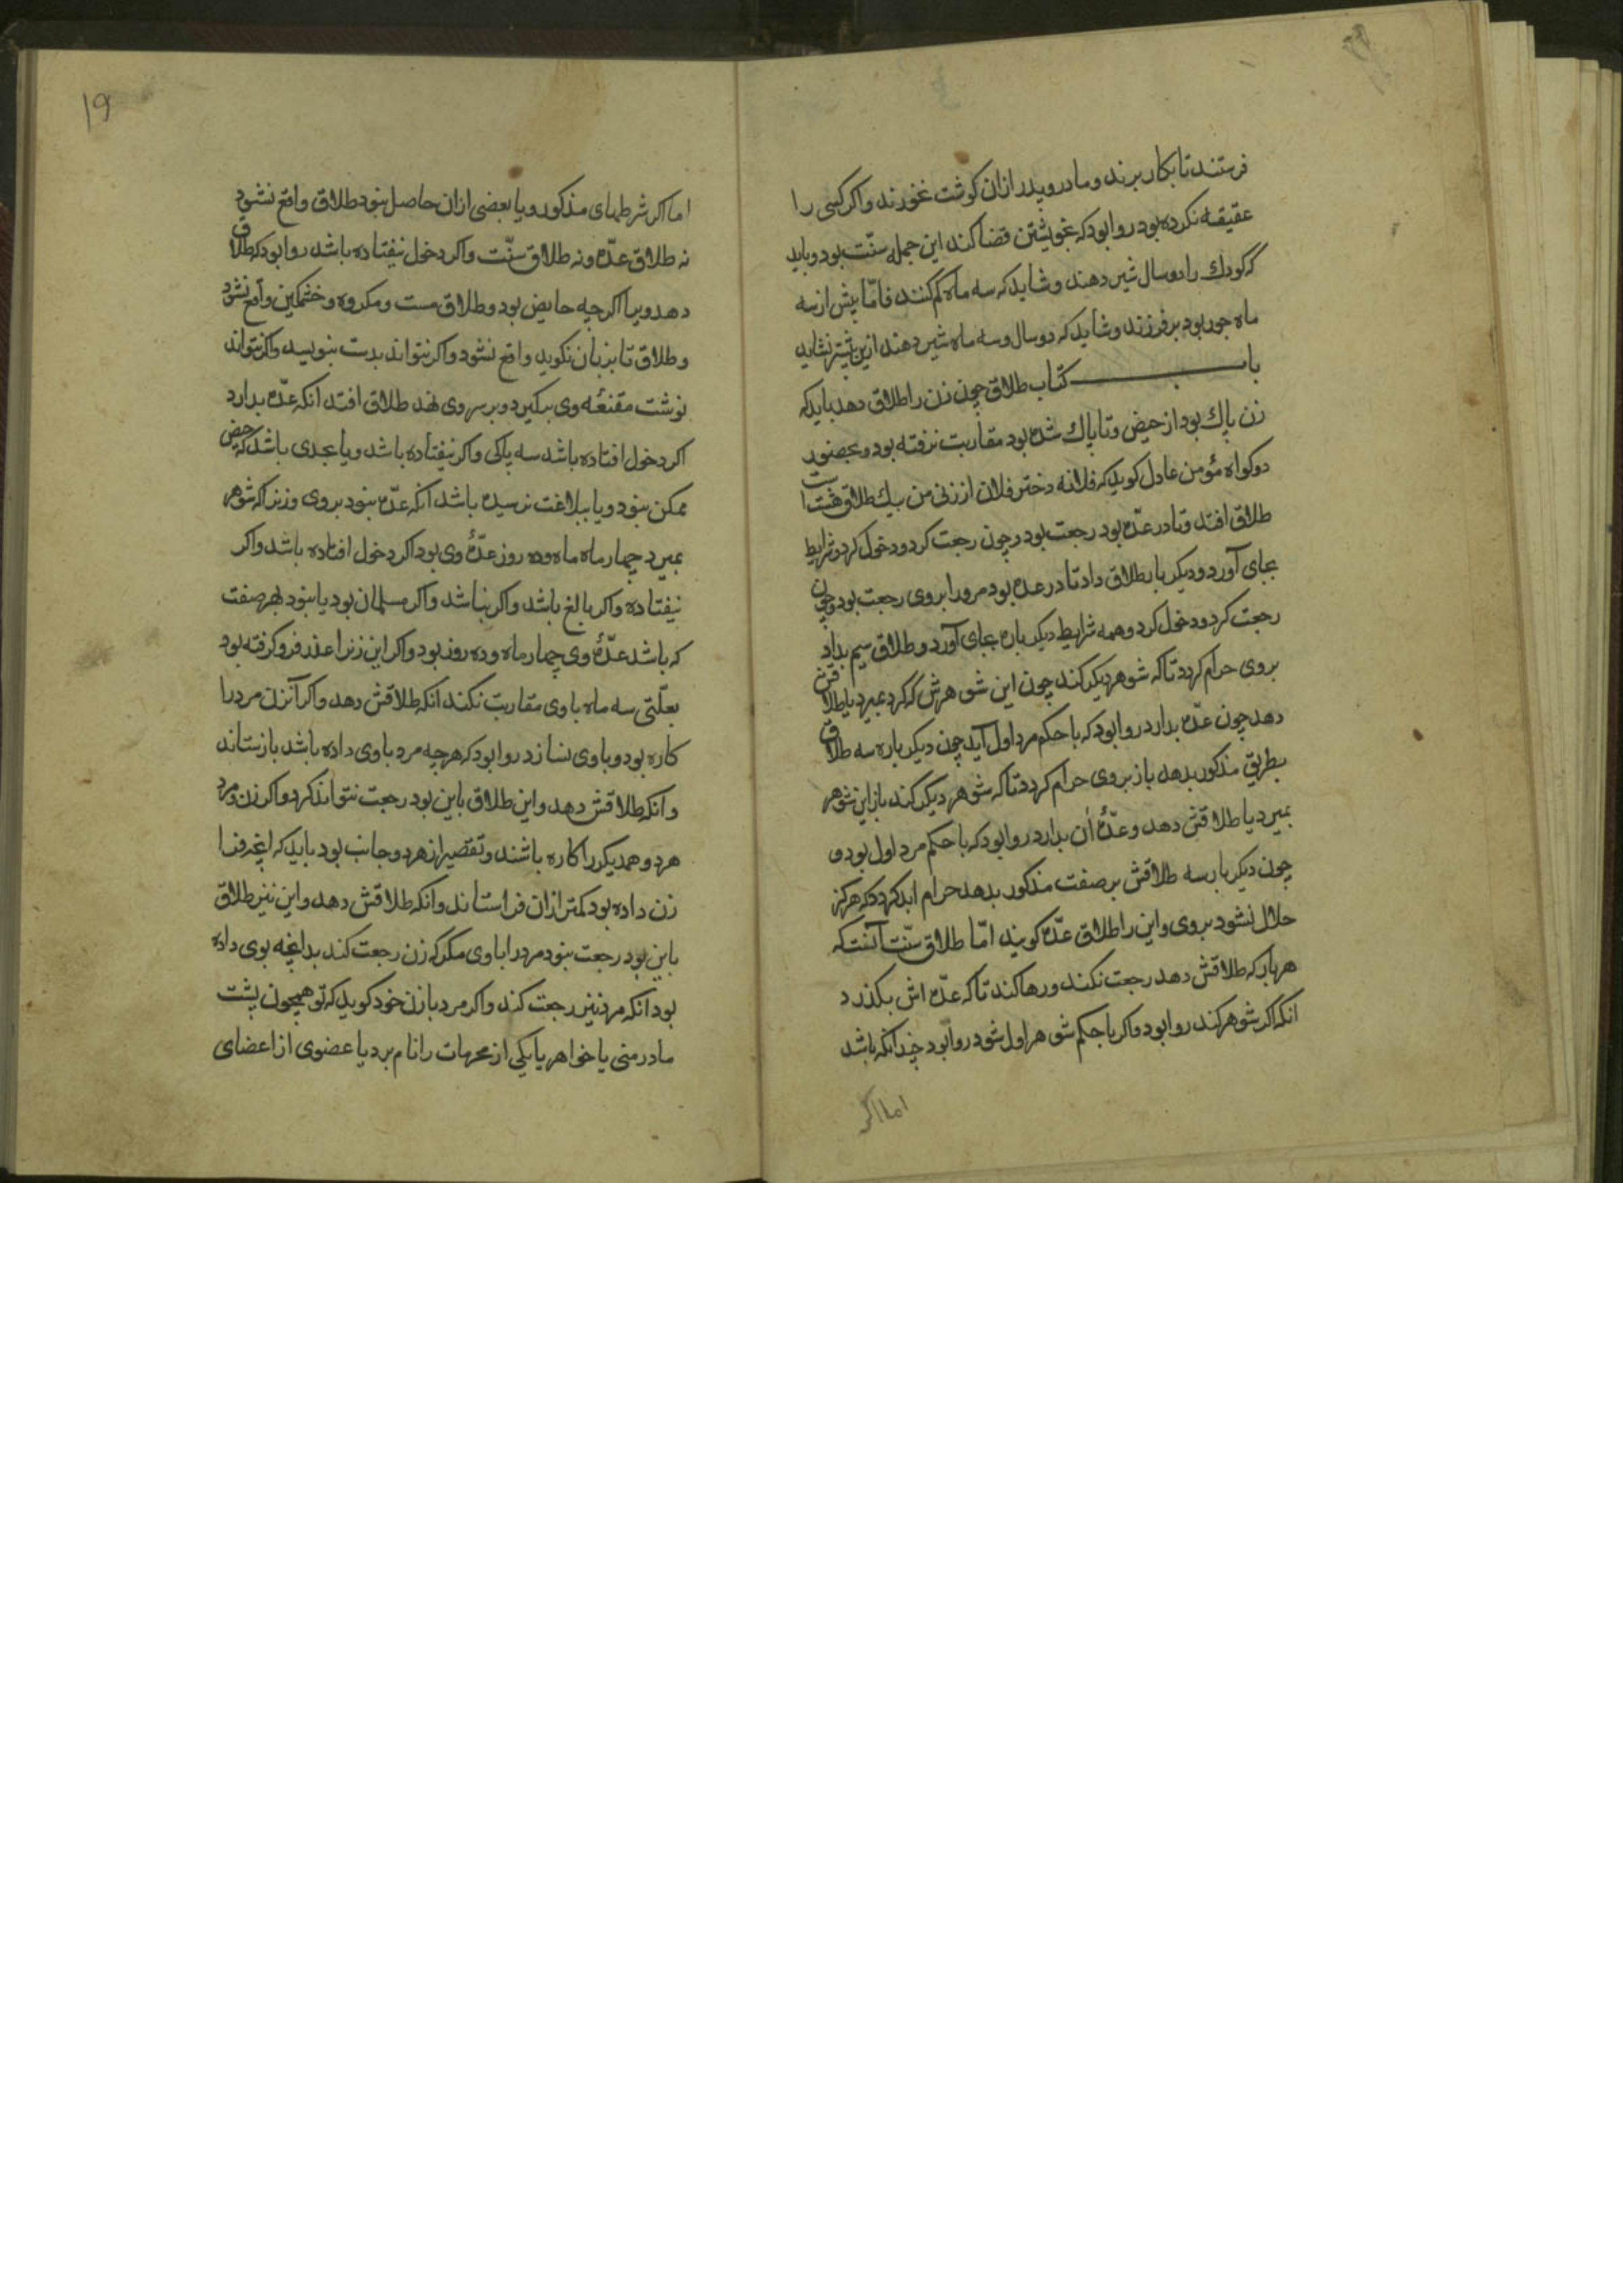 فرستند تا بکار برند و مادر و پدر ازان کوشت نخورند و اکر کسی را
عقیقه نکرده بود روا بود که بخویشتن قضا کند این جمله سنّت بود و باید
که کودك را دو سال شیر دهند و شاید که سه ماه کم کنند فامّا بیش از سه
ماه جور بود بر فرزند و شاید که دو سال و سه ماه شیر دهند ازین بیشتر نشاید
باب کتاب طلاق چون زن را طلاق دهد باید که
زن پاك بود از حیض و تا پاك شده بود مقاربت نرفته بود و بحضور
دو کواه مؤمن عادل کوید که فلانه دختر فلان از زنی من بیك طلاق هشته است
طلاق افتد و تا در عدّه بود رجعت بود و چون رجعت کرد و دخول کرد و شرایط
بجای آورد و دیکر بار طلاق داد تا در عدّه بود مرورا بروی رجعت بود و چون
رجعت کرد و دخول کرد و همه شرایط دیکر باره بجای آورد و طلاق سیم بداد
بروی حرام کردد تا که شوهر دیکر کند چون این شوهرش که کرد بمیرد یا طلاقش
دهد چون عدّه بدارد روا بود که با حکم مرد اول آید چون دیکر باره سه طلاق
بطریق مذکور بدهد باز بروی حرام کردد تا که شوهر دیکر کند باز این شوهر
بمیرد یا طلاقش دهد و عدّهٔ آن بدارد روا بود که با حکم مرد اول بود و
چون دیکر بار سه طلاقش بر صفت مذکور بدهد حرام ابد کردد که هرکز
حلال نشود بروی و این را طلاق عدّه کویند امّا طلاق سنّت آنست که
هر بار که طلاقش دهد رجعت نکند و رها کند تا که عدّه اش بکذرد
انکه اکر شوهر کند روا بود و اکر با حکم شوهر اول شود روا بود چندانکه باشد
اما اکر
۱۹
اما اکر شرطهای مذکور و یا بعضی ازان حاصل نبود طلاق واقع نشود
نه طلاق عدّه و نه طلاق سنّت و اکر دخول نیفتاده باشد روا بود که طلاق
دهد ویرا اکرچه حایض بود و طلاق مست و مکروه و خشمکین واقع نشود
و طلاق تا بزبان نکوید واقع نشود و اکر نتواند بدست بنویسد و اکر نتواند
نوشت مقنعهٔ وی بکیرد و بر سر وی نهد طلاق افتد آنکه عدّه بدارد
اکر دخول افتاده باشد سه پاکی و اکر نیفتاده باشد و یا بحدی باشد که حیض
ممکن نبود و یا ببلاغت نرسیده باشد آنکه عدّه نبود بروی و زنرا که شوهر
بمیرد چهار ماه ماه و ده روز عدّهٔ وی بود اکر دخول افتاده باشد و اکر
نیفتاده و اکر بالغ باشد و اکر نباشد و اکر مسلمان بود یا نبود بهر صفت
که باشد عدّهٔ وی چهار ماه و ده روز بود و اکر این زنرا عذر فرو کرفته بود
بعلّتی سه ماه با وی مقاربت نکند انکه طلاقش دهد و اکر آنزن مرد را
کاره بود و با وی نسازد روا بود که هرچه مرد باوی داده باشد باز ستاند
و آنکه طلاقش دهد و این طلاق باین بود رجعت نتواند کرد و اکر زن و مرد
هر دو همدیکر را کاره باشند و تقصیر از هر دو جانب بود باید که انچه فرا
زن داده بود کمتر ازان فرا ستاند و انکه طلاقش دهد و این نیز طلاق
باین بود رجعت نبود مرد را باوی مکر که زن رجعت کند بدانچه بوی داده
بود انکه مرد نیز رجعت کند و اکر مرد با زن خود کوید که تو همچون پشت
مادر منی یا خواهر یا یکی از محرمات را نام برد یا عضوی از اعضای